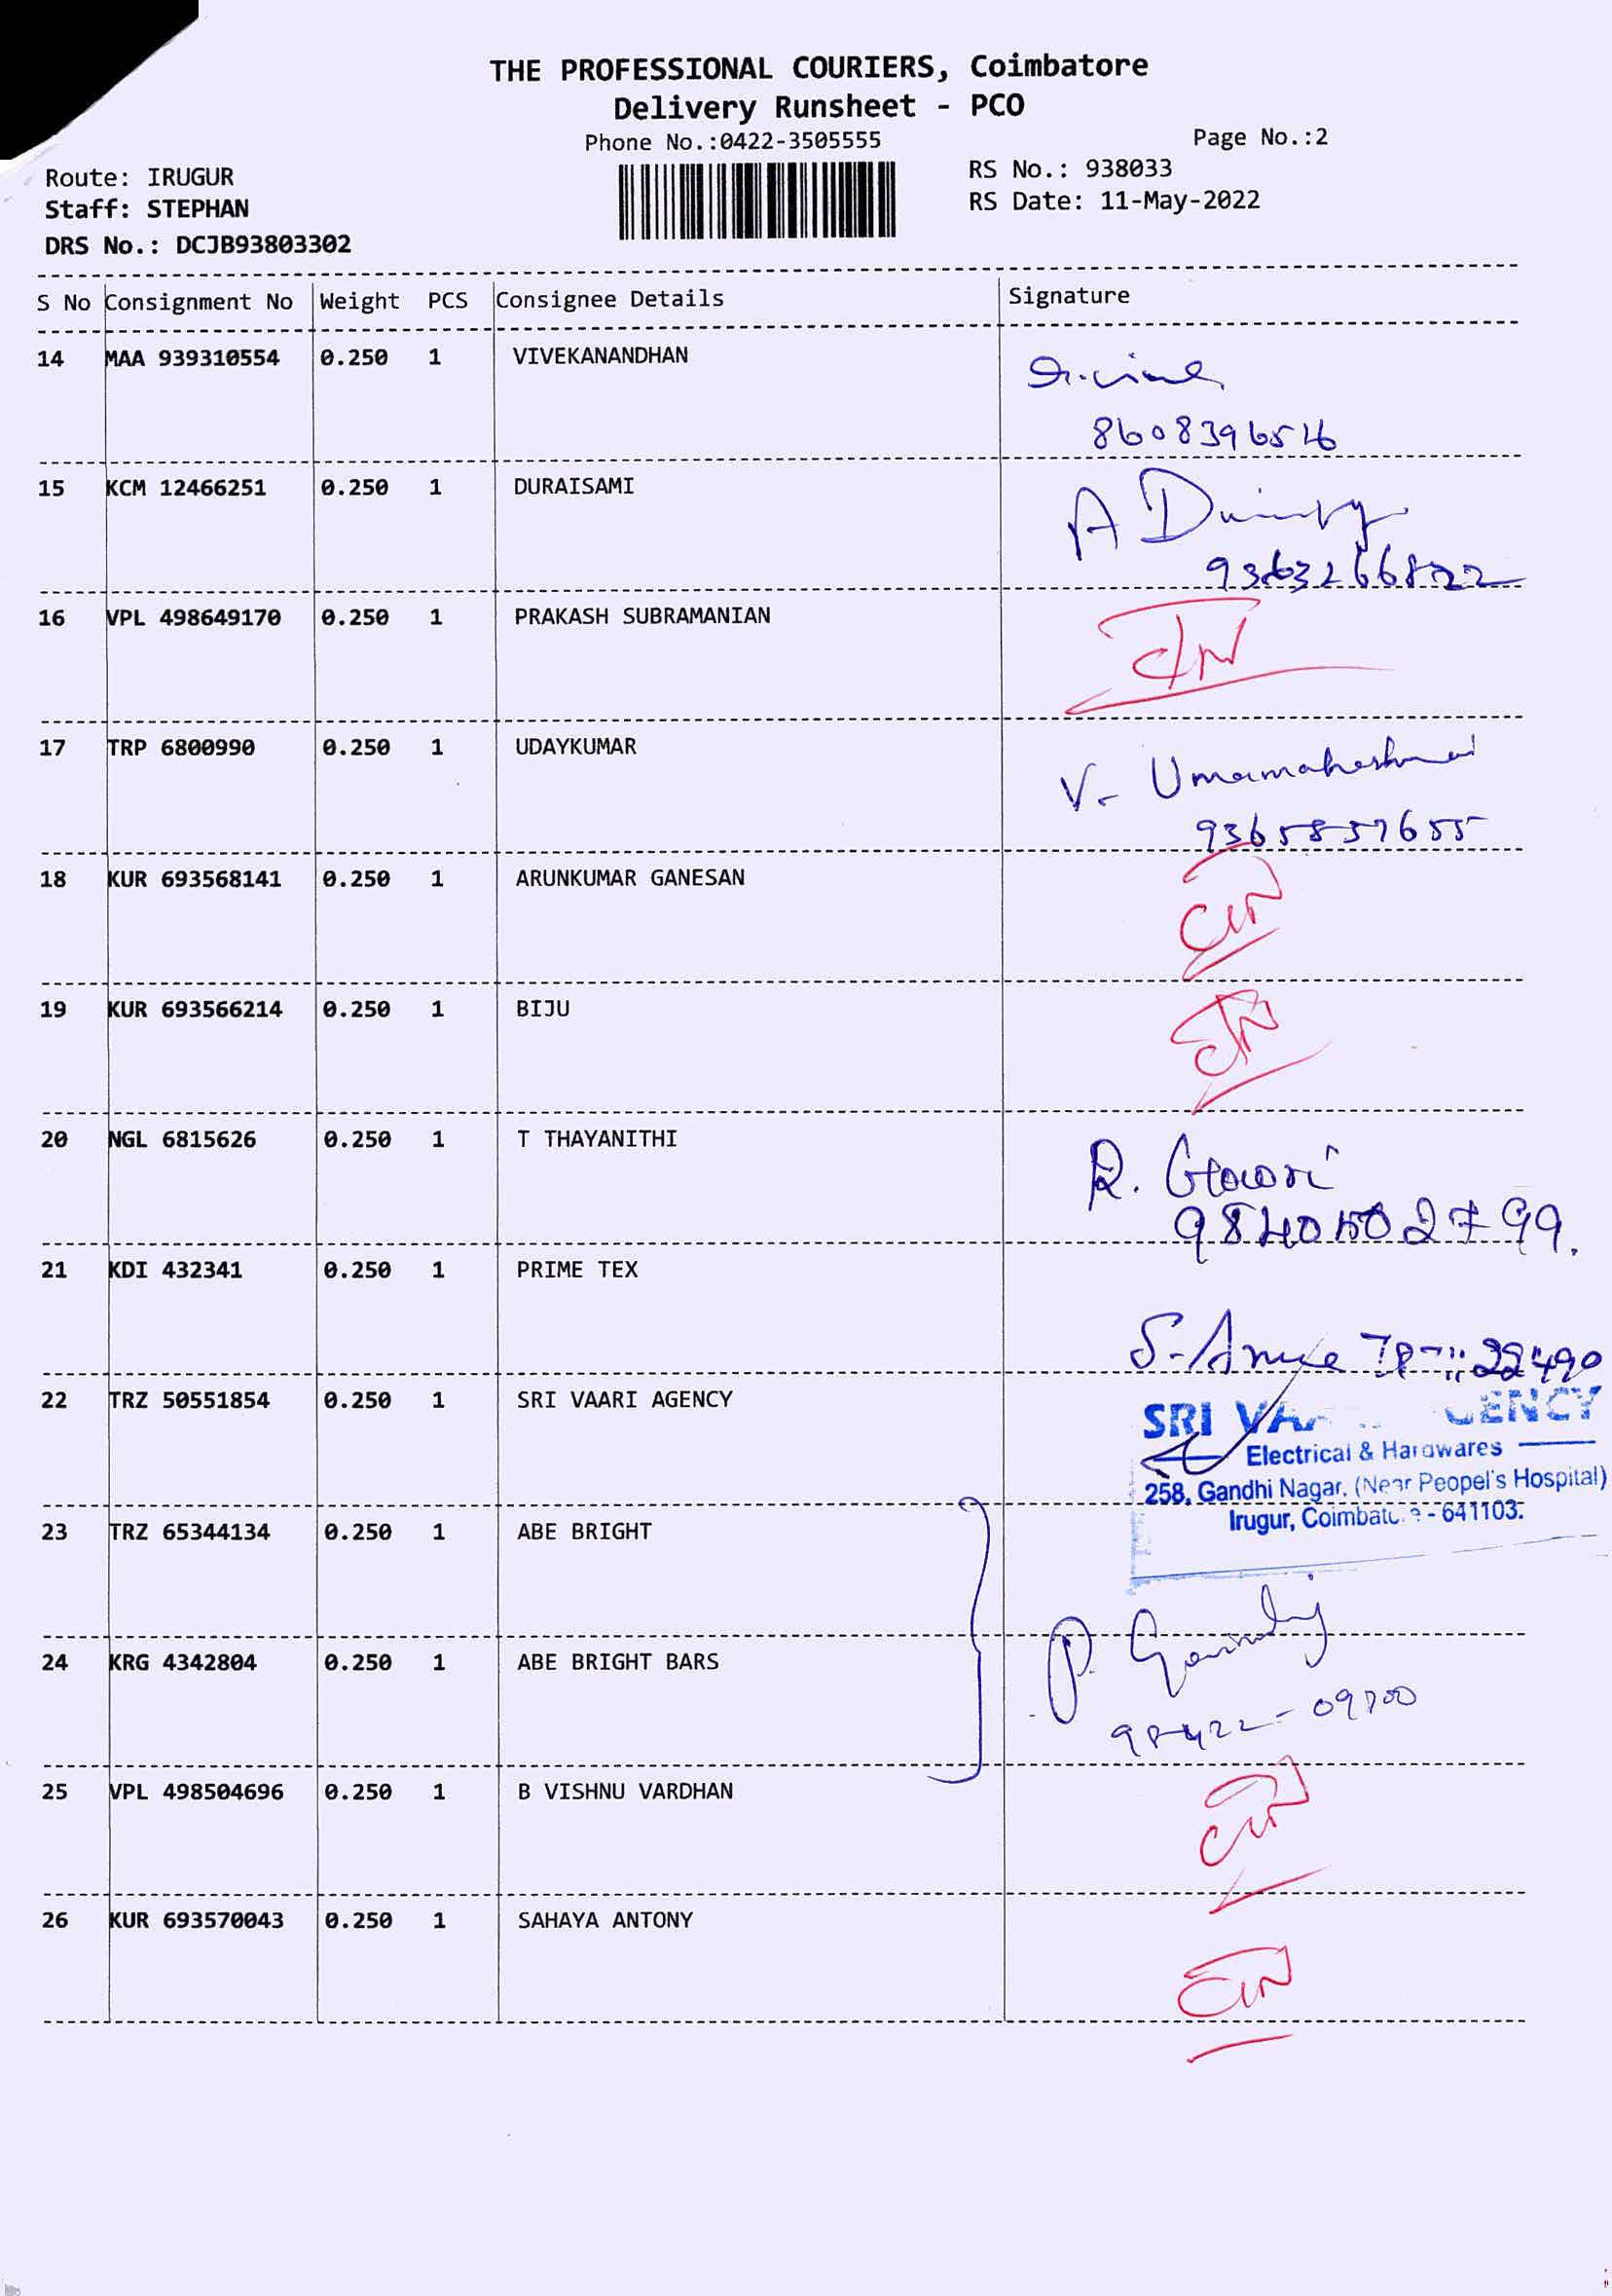 THE PROFESSIONAL COURIERS, Coimbatore
Delivery Runsheet - PCO
Phone No.:0422-3505555
Page No.:2
Route: IRUGUR
RS No.: 938033
Staff: STEPHAN
RS Date: 11-May-2022
DRS No.: DCJB93803302
S No Consignment No Weight PCS Consignee Details Signature
14 MAA 939310554 0.250 1 VIVEKANANDHAN
8608396516
15 KCM 12466251 0.250 1 DURAISAMI
A
16 VPL 498649170 0.250 1 PRAKASH SUBRAMANIAN
17 TRP 6800990 0.250 1 UDAYKUMAR
V- Umamaheshwari
9365857655
18 KUR 693568141 0.250 1 ARUNKUMAR GANESAN
19 KUR 693566214 0.250 1 BIJU
20 NGL 6815626 0.250 1 T THAYANITHI
R. Gowri
21 KDI 432341 0.250 1 PRIME TEX
22 TRZ 50551854 0.250 1 SRI VAARI AGENCY
SRI
Electrical & Hardwares
258, Gandhi Nagar, (Near Peopel's Hospital)
Irugur, Coimbatore - 641103.
23 TRZ 65344134 0.250 1 ABE BRIGHT
24 KRG 4342804 0.250 1 ABE BRIGHT BARS
P.
25 VPL 498504696 0.250 1 B VISHNU VARDHAN
26 KUR 693570043 0.250 1 SAHAYA ANTONY